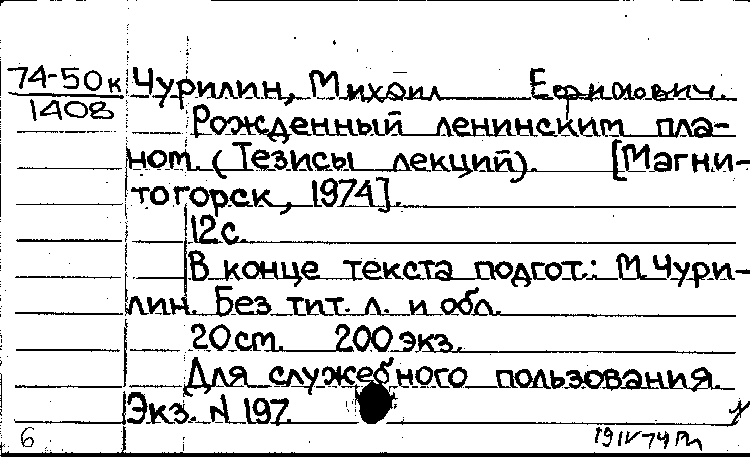 74-50к Чурилин, Михаил Ефимович.
1408 Рожденный ленинским пла-
ном. (Тезисы лекций). [Магни-
тогорск, 1974].
12с.
В конце текста подгот.: М.Чури-
лин. Без тит. л. и обл.
20 ст. 200 экз.
Для служебного пользования.
Экз. N 197.
6 19 IV 74